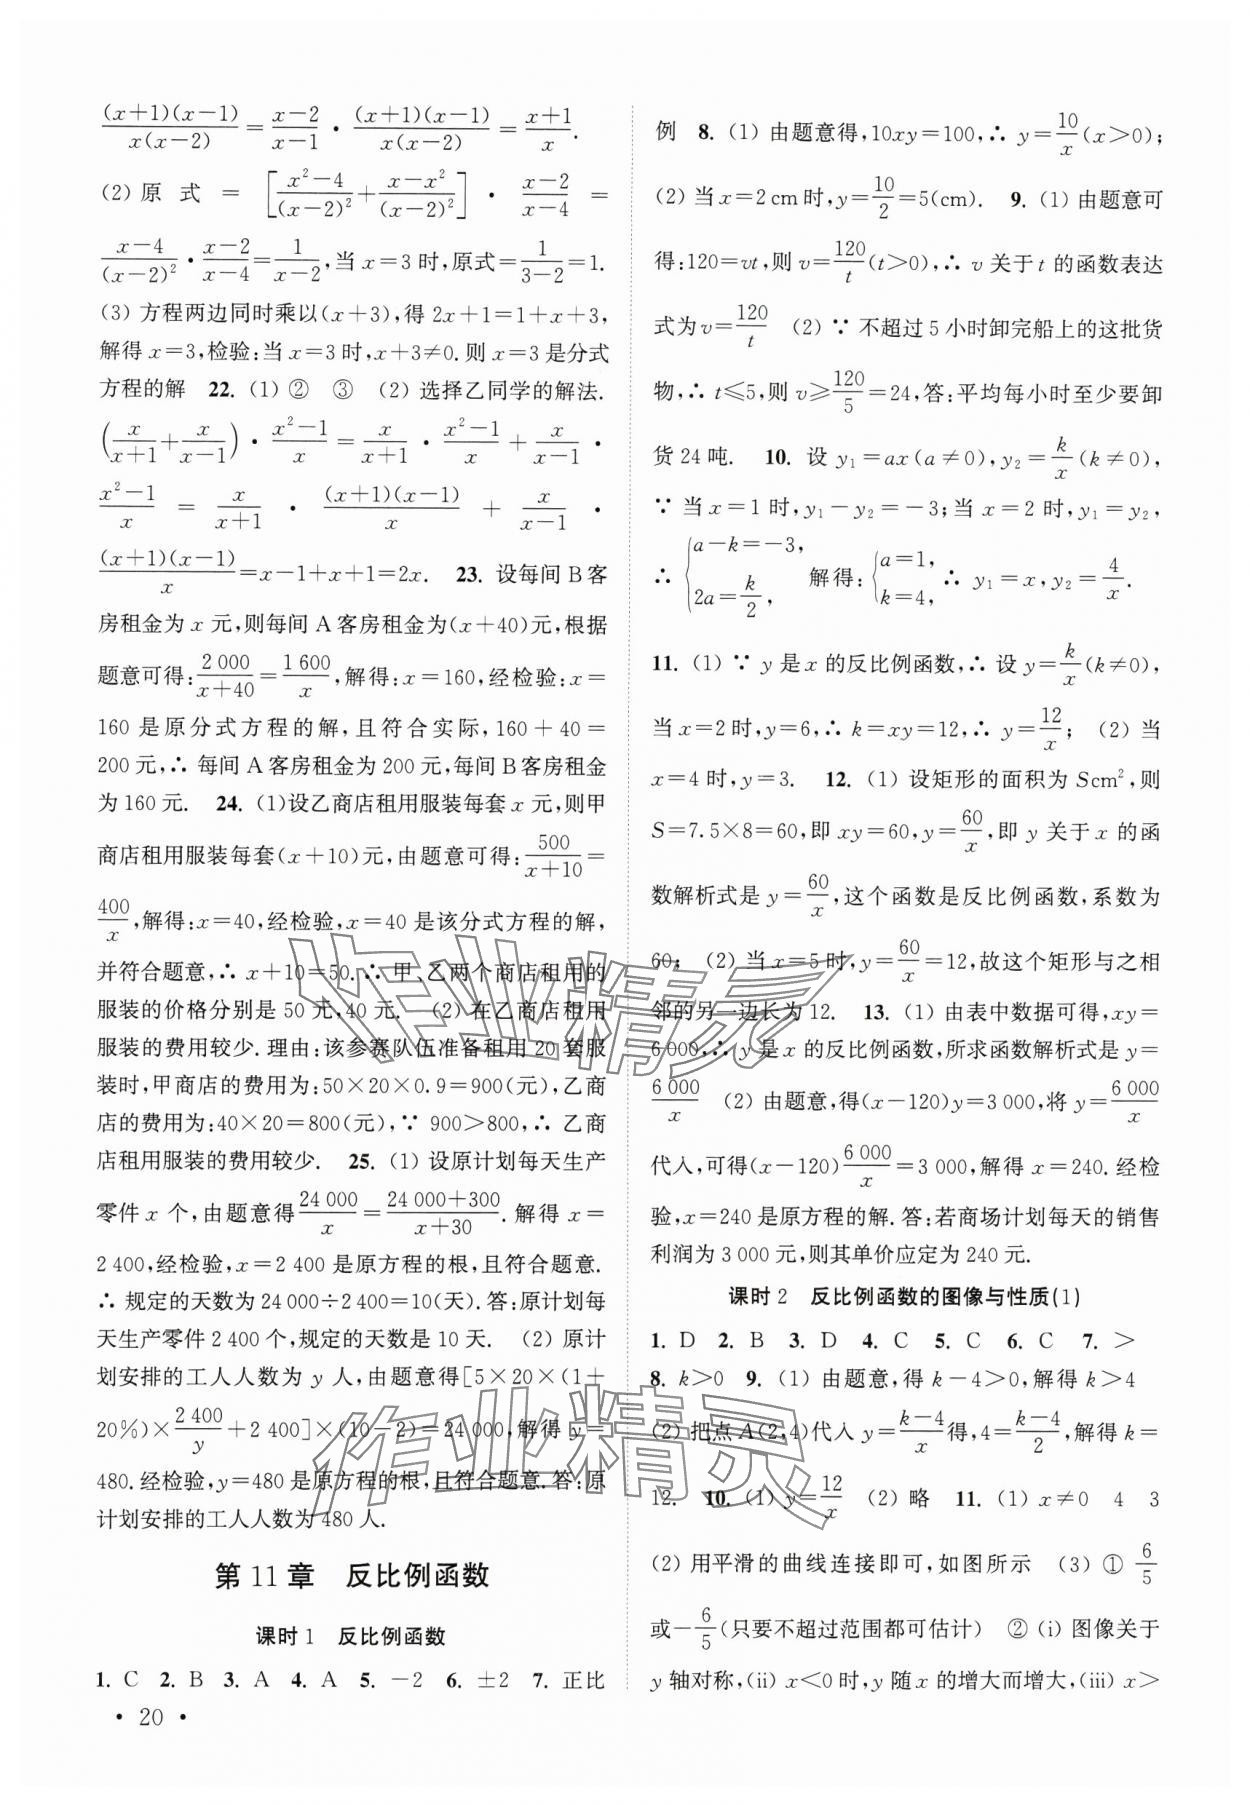 (x+1)(x-1)/x(x-2) = (x-2)/(x-1) · (x+1)(x-1)/x(x-2) = (x+1)/x.
(2) 原式 = [(x²-4)/(x-2)² + (x-x²)/(x-2)²] · (x-2)/(x-4) =
(x-4)/(x-2)² · (x-2)/(x-4) = 1/(x-2),当 x=3 时,原式=1/(3-2)=1.
(3) 方程两边同时乘以(x+3),得 2x+1=1+x+3,
解得 x=3,检验:当 x=3 时,x+3≠0.则 x=3 是分式
方程的解 22. (1) ② ③ (2) 选择乙同学的解法.
(x/(x+1) + x/(x-1)) · (x²-1)/x = x/(x+1) · (x²-1)/x + x/(x-1) ·
(x²-1)/x = x/(x+1) · (x+1)(x-1)/x + x/(x-1) ·
(x+1)(x-1)/x =x-1+x+1=2x. 23. 设每间 B 客
房租金为 x 元,则每间 A 客房租金为(x+40)元,根据
题意可得:2 000/(x+40)=1 600/x,解得:x=160,经检验:x=
160 是原分式方程的解,且符合实际,160+40=
200 元,∴ 每间 A 客房租金为 200 元,每间 B 客房租金
为 160 元. 24. (1)设乙商店租用服装每套 x 元,则甲
商店租用服装每套(x+10)元,由题意可得:500/(x+10)=
400/x,解得:x=40,经检验,x=40 是该分式方程的解,
并符合题意,∴ x+10=50.∴ 甲、乙两个商店租用的
服装的价格分别是 50 元,40 元. (2) 在乙商店租用
服装的费用较少.理由:该参赛队伍准备租用 20 套服
装时,甲商店的费用为:50×20×0.9=900(元),乙商
店的费用为:40×20=800(元),∵ 900>800,∴ 乙商
店租用服装的费用较少. 25. (1) 设原计划每天生产
零件 x 个,由题意得24 000/x=(24 000+300)/(x+30).解得 x=
2 400,经检验,x=2 400 是原方程的根,且符合题意.
∴ 规定的天数为 24 000÷2 400=10(天).答:原计划每
天生产零件 2 400 个,规定的天数是 10 天. (2) 原计
划安排的工人人数为 y 人,由题意得[5×20×(1+
20%)×2 400/y+2 400]×(10-2)=24 000,解得 y=
480.经检验,y=480 是原方程的根,且符合题意.答:原
计划安排的工人人数为 480 人.
第 11 章 反比例函数
课时 1 反比例函数
1. C 2. B 3. A 4. A 5. -2 6. ±2 7. 正比
· 20 ·
例 8. (1) 由题意得,10xy=100,∴ y=10/x(x>0);
(2) 当 x=2 cm 时,y=10/2=5(cm). 9. (1) 由题意可
得:120=vt,则 v=120/t(t>0),∴ v 关于 t 的函数表达
式为 v=120/t (2) ∵ 不超过 5 小时卸完船上的这批货
物,∴ t≤5,则 v≥120/5=24,答:平均每小时至少要卸
货 24 吨. 10. 设 y₁=ax(a≠0),y₂=k/x(k≠0),
∵ 当 x=1 时,y₁-y₂=-3;当 x=2 时,y₁=y₂,
∴ {a-k=-3, 2a=k/2, 解得:{a=1, k=4, ∴ y₁=x,y₂=4/x.
11. (1) ∵ y 是 x 的反比例函数,∴ 设 y=k/x(k≠0),
当 x=2 时,y=6,∴ k=xy=12,∴ y=12/x; (2) 当
x=4 时,y=3. 12. (1) 设矩形的面积为 S cm²,则
S=7.5×8=60,即 xy=60,y=60/x,即 y 关于 x 的函
数解析式是 y=60/x,这个函数是反比例函数,系数为
60; (2) 当 x=5 时,y=60/x=12,故这个矩形与之相
邻的另一边长为 12. 13. (1) 由表中数据可得,xy=
6 000,∴ y 是 x 的反比例函数,所求函数解析式是 y=
6 000/x (2) 由题意,得(x-120)y=3 000,将 y=6 000/x
代入,可得(x-120)6 000/x=3 000,解得 x=240.经检
验,x=240 是原方程的解.答:若商场计划每天的销售
利润为 3 000 元,则其单价应定为 240 元.
课时 2 反比例函数的图像与性质(1)
1. D 2. B 3. D 4. C 5. C 6. C 7. >
8. k>0 9. (1) 由题意,得 k-4>0,解得 k>4
(2) 把点 A(2,4)代入 y=(k-4)/x得,4=(k-4)/2,解得 k=
12. 10. (1) y=12/x (2) 略 11. (1) x≠0 4 3
(2) 用平滑的曲线连接即可,如图所示 (3) ① 6/5
或-6/5(只要不超过范围都可估计) ② (i) 图像关于
y 轴对称,(ii) x<0 时,y 随 x 的增大而增大,(iii) x>
作业精灵
作业精灵